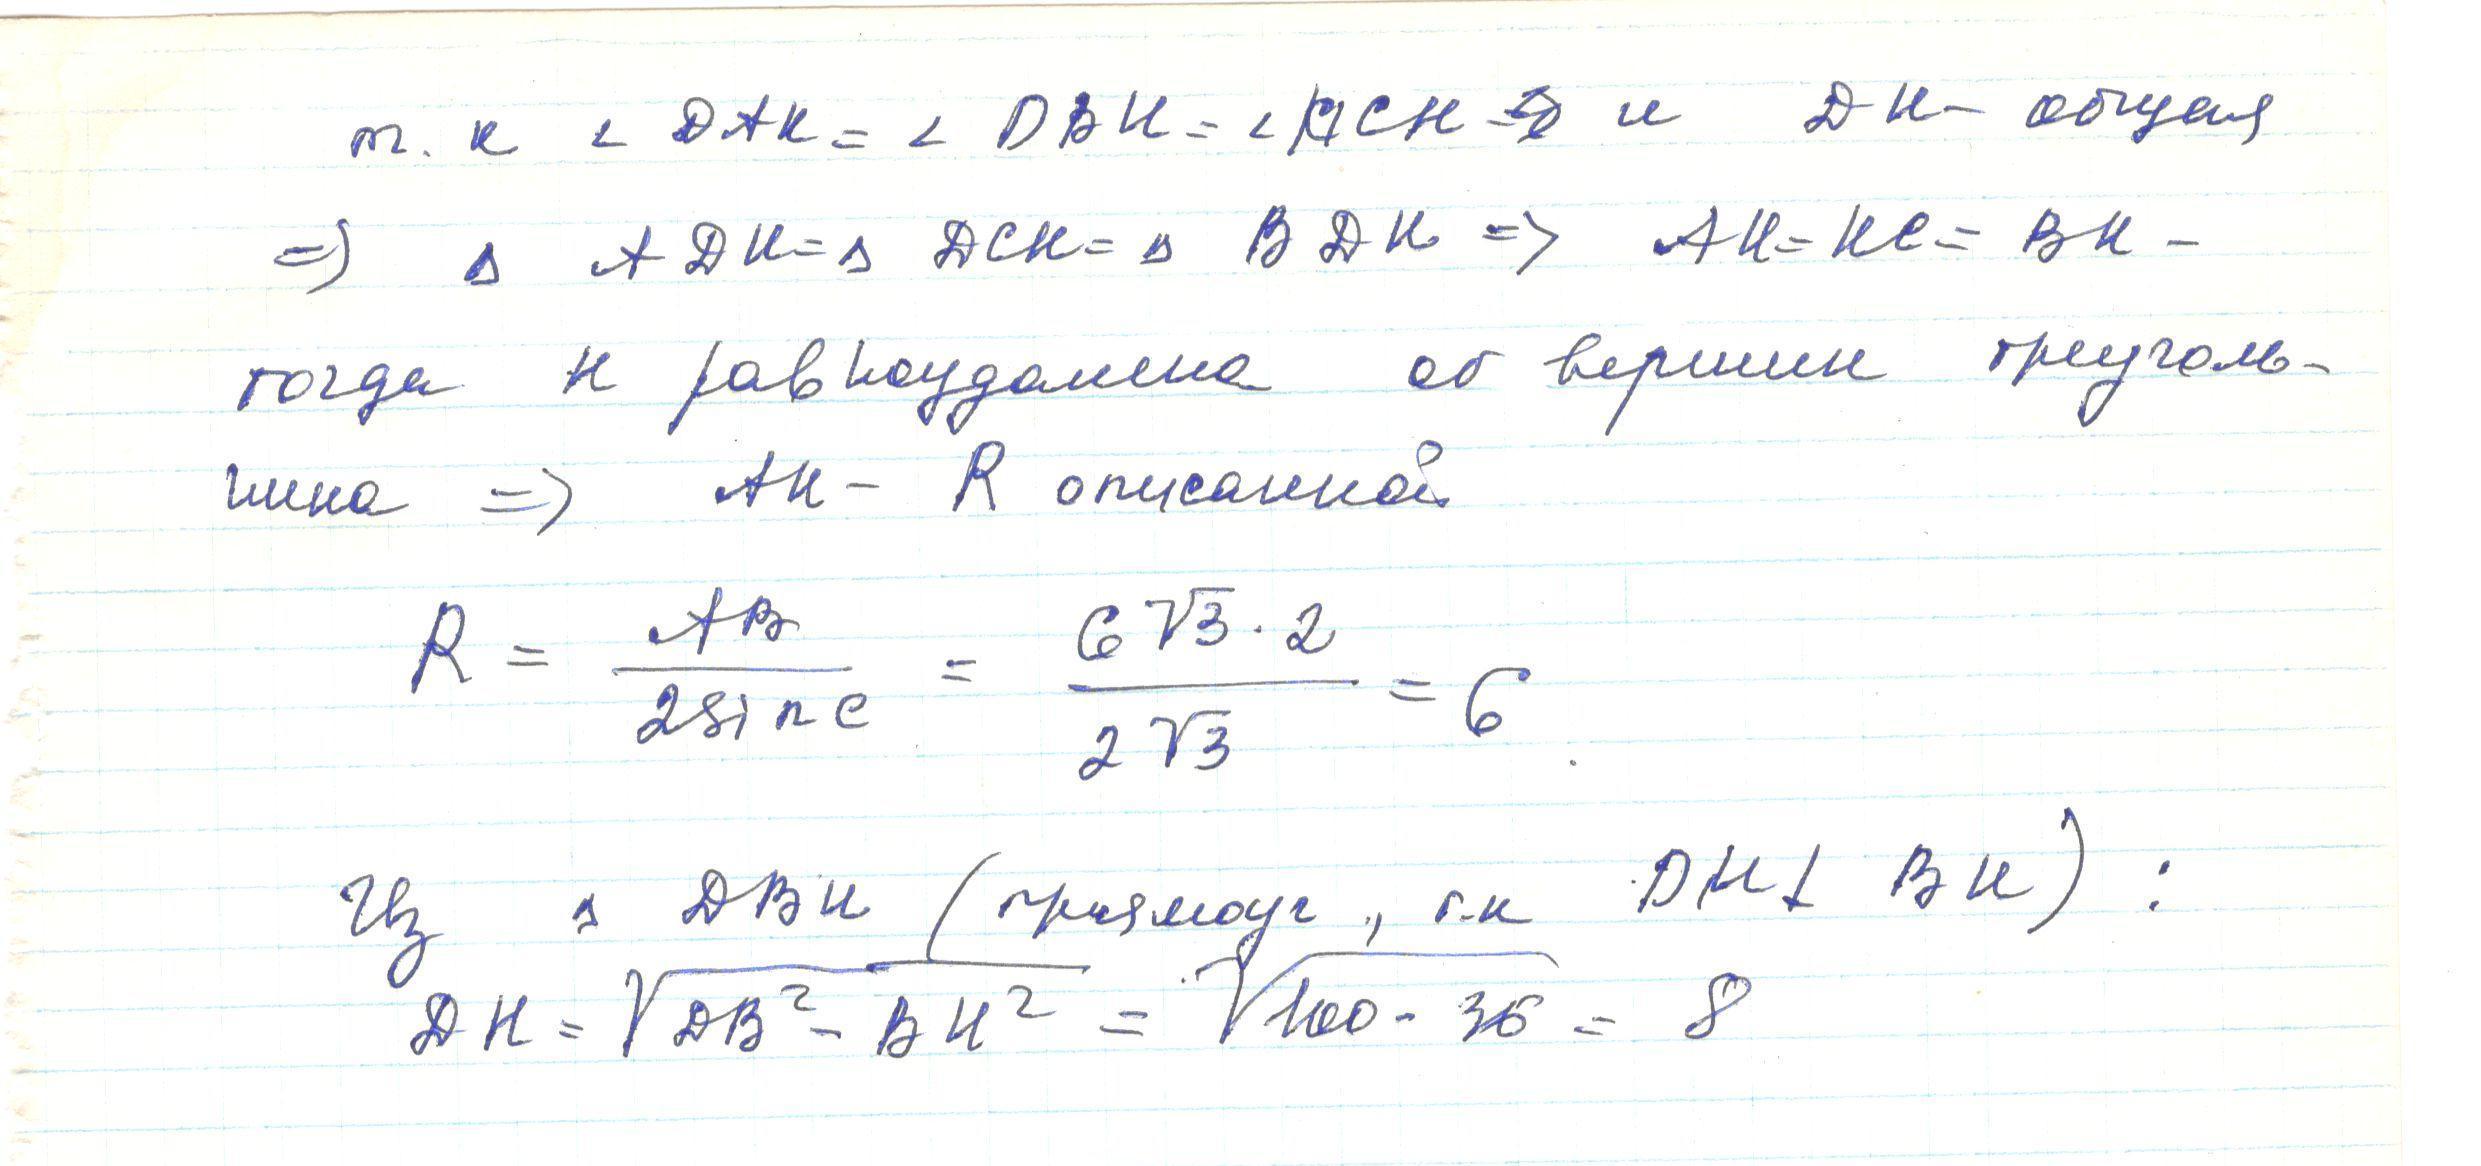 т. к ∠ DAK = ∠ DBK = ∠ DCK и DK - общая
=> Δ ADK = Δ DCK = Δ BDK => AK = KC = BK -
тогда K равноудалена от вершин треуголь-
ника => AK - R описанной
R = AB / 2sin C = 6√3 · 2 / 2√3 = 6
Из Δ DBK (прямоуг, т.к DK ⊥ BK) :
DK = √DB² - BK² = √100 - 36 = 8